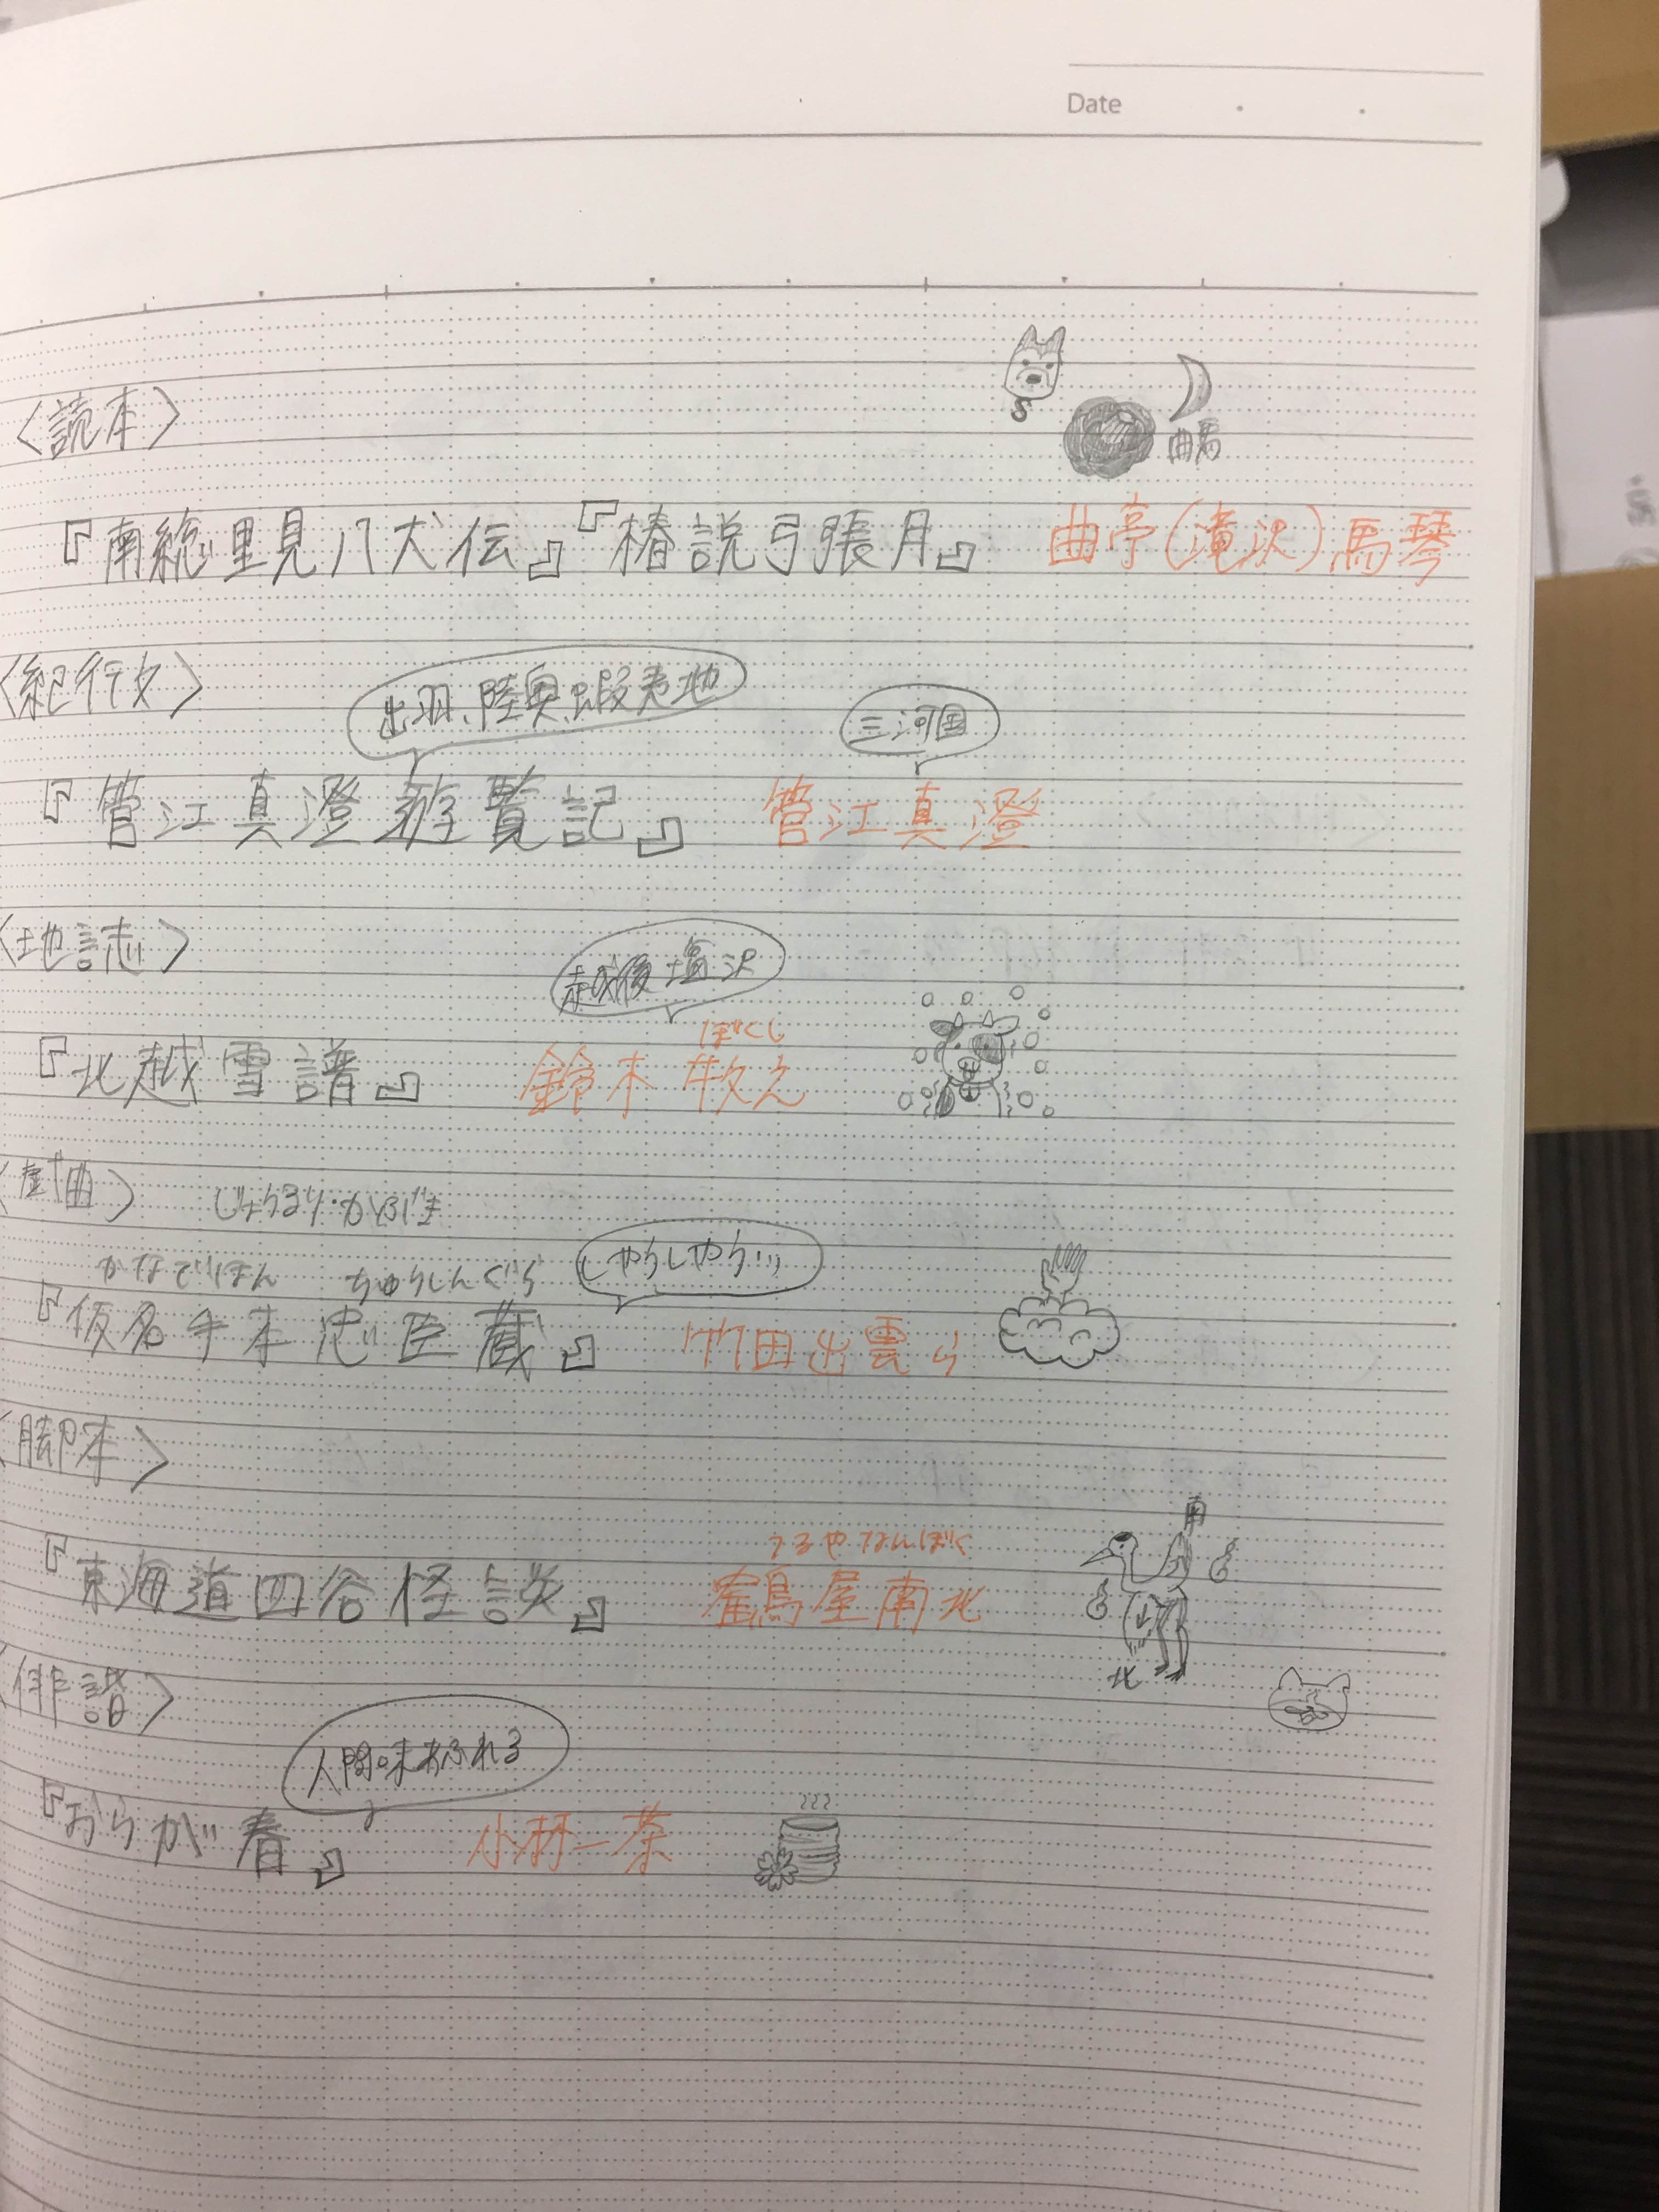 Date
〈読本〉
曲馬
『南総里見八犬伝』『椿説弓張月』 曲亭(滝沢)馬琴
〈紀行文〉
出羽、陸奥、蝦夷地
三河国
『管江真澄遊覧記』 管江真澄
〈地誌〉
越後塩沢
ぼくし
『北越雪譜』 鈴木牧之
〈戯曲〉 じょうるり・かぶき
かなでほん ちゅうしんぐら
『仮名手本忠臣蔵』 竹田出雲ら
〈脚本〉
南
つるやなんぼく
『東海道四谷怪談』 鶴屋南北
北
〈俳諧〉
人間味あふれる
『おらが春』 小林一茶